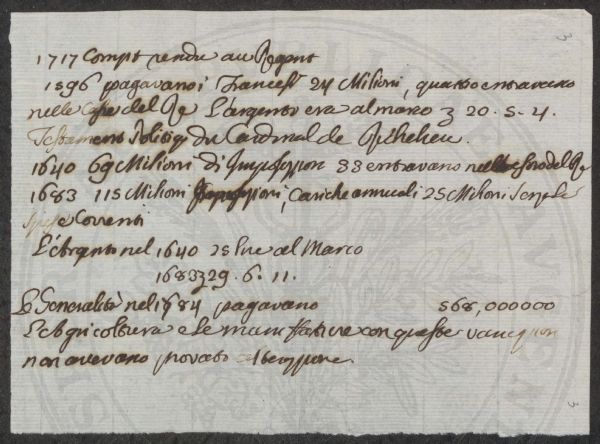 1717 Compt rendu au Regent
1596 pagavano i Francesi 24 Milioni, quattro entravano
nelle Casse del Re L'argento era al marco 20. 5. 4.
Testament Politiq du Cardinal de Richelieu.
1640 69 Milioni di 33 entravano nel Tesoro del Re
1683 115 Milioni Cariche annuali 25 Milioni
Spese Correnti
L'Argento nel 1640 25 lire al Marco
1683 29. 6. 11.
Le Generalità nel 1684 pagavano 568,000000
L'Agricoltura e le manifatture con queste
non avevano provato